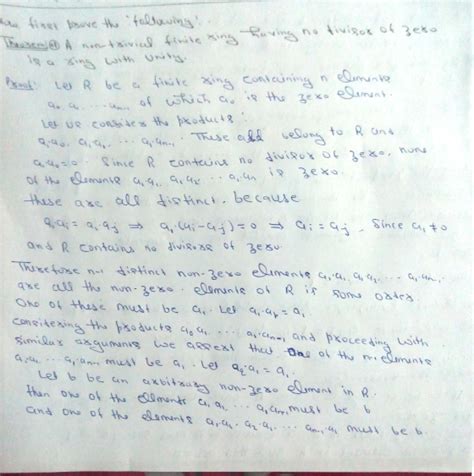 first prove the following:
Theorem A non-trivial finite ring having no divisor of zero
is a ring with unity.
Proof: Let R be a finite ring containing n elements
a₀, a₁, ... aₙ₋₁ of which a₀ is the zero element.
Let us consider the products:
a₁a₀, a₁a₁, ... a₁aₙ₋₁. These all belong to R and
a₁a₀=0. Since R contains no divisor of zero, none
of the elements a₁a₁, a₁a₂ ... is zero.
these are all distinct, because
a₁aᵢ = a₁aⱼ ⇒ a₁(aᵢ-aⱼ)=0 ⇒ aᵢ=aⱼ, since a₁≠0
and R contains no divisors of zero
Therefore n-1 distinct non-zero elements a₁a₁, a₁a₂ ... a₁aₙ₋₁,
are all the non-zero elements of R in some order.
One of these must be a₁. Let a₁aₚ = a₁
considering the products ... and proceeding with
similar arguments we assert that one of the n-1 elements
must be a₁. Let = a₁.
Let b be an arbitrary non-zero element in R.
then one of the elements a₁a₁ ... a₁aₙ₋₁ must be b
and one of the elements a₁a₁, a₂a₁ ... aₙ₋₁a₁ must be b.